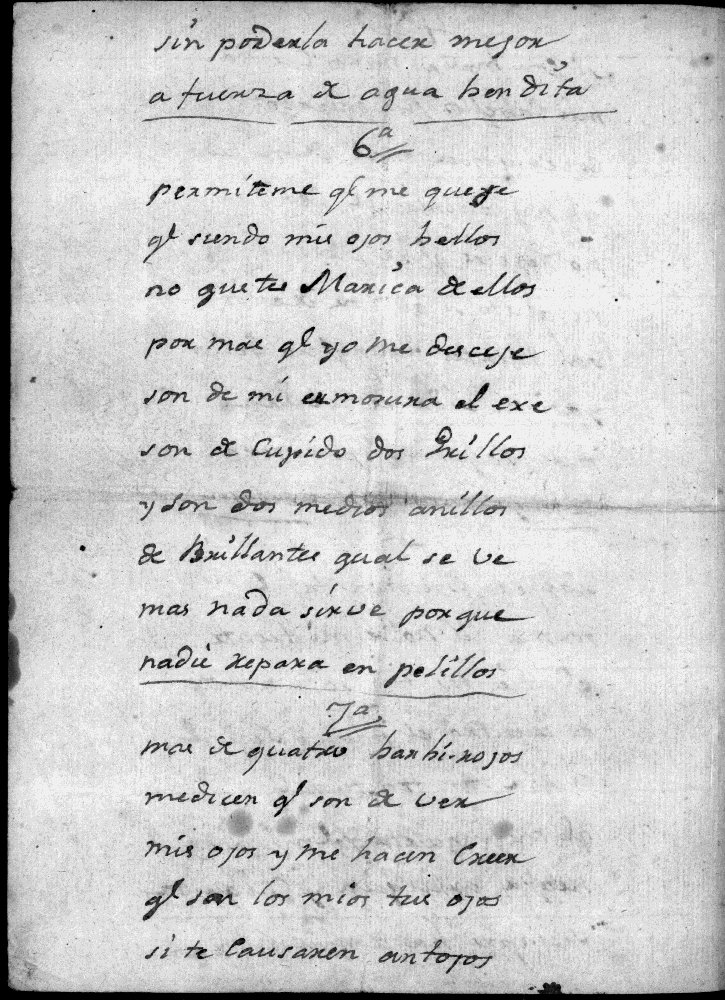 sin poderla hacer mejor
a fuerza de agua bendita
6ª
permiteme ql me queje
ql siendo mis ojos bellos
no gustes Marica de ellos
por mas ql yo me desceje
son de mi ermosura el exe
son de Cupido dos Grillos
y son dos medios anillos
de Brillantes qual se ve
mas nada sirve porque
nadie repara en pelillos
7ª
mas de quatro barbi-rojos
me dicen ql son de ver
mis ojos y me hacen Creer
ql son los mios tus ojos
si te Causaren antojos